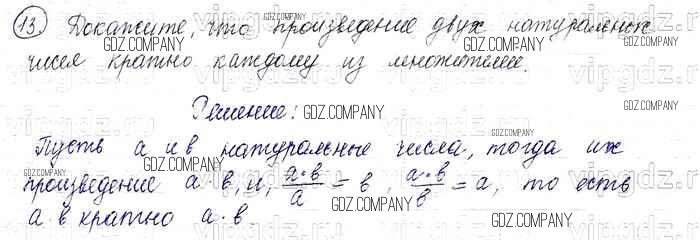 13. Докажите, что произведение двух натуральных
чисел кратно каждому из множителей.
Решение:
Пусть а и в натуральные числа, тогда их
произведение а·в, и, а·в/а = в, а·в/в = а, то есть
а·в кратно а·в
GDZ.COMPANY
GDZ.COMPANY
GDZ.COMPANY
GDZ.COMPANY
GDZ.COMPANY
GDZ.COMPANY
GDZ.COMPANY
GDZ.COMPANY
GDZ.COMPANY
vipgdz.ru